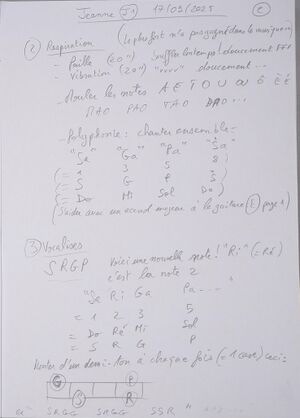 Jeanne (J1) 17/09/2025 (2)
(2) Respiration (le prof m'a accompagné dans le
- Paille (20") Souffler longtemps doucement FFF
- Vibration (20") "vvvv" doucement...
Rouler les notes A E I O U OU É È Ê
MAO PAO TAO DAO...
- Polyphonie: chanter ensemble =
"Sa" "Ga" "Pa" "Sa"
(= 1 3 5 8)
(= S G P S)
(= Do Mi Sol Do)
(S'aider avec un accord majeur à la guitare (E) page 1)
(3) Vocalises
S R G P Voici une nouvelle note! "Ri" (= Ré)
c'est la note 2
"Sa Ri Ga Pa...."
= 1 2 3 5
= Do Ré Mi Sol
= S R G P
Monter d'un demi-ton à chaque fois (= 1 case) ceci:
G P
S R
a" SRGG SRGG SSR "